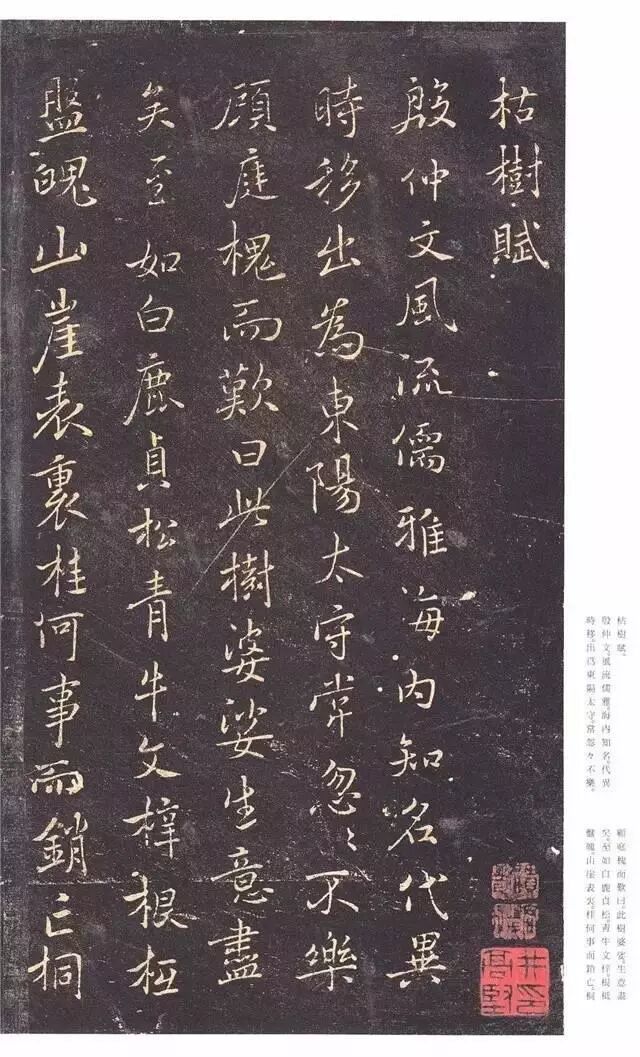 枯樹賦
殷仲文風流儒雅海内知名代異
時移出為東陽太守常忽〻不樂
顧庭槐而歎曰此樹婆娑生意盡
矣至如白鹿貞松青牛文梓根柢
盤魄山崖表裏桂何事而銷亡桐
枯樹賦。
殷仲文。風流儒雅。海内知名。代異
時移。出爲東陽太守。常忽々不樂。
顧庭槐而歎曰。此樹婆娑。生意盡
矣。至如白鹿貞松。青牛文梓。根柢
盤魄。山崖表裏。桂何事而銷亡。桐